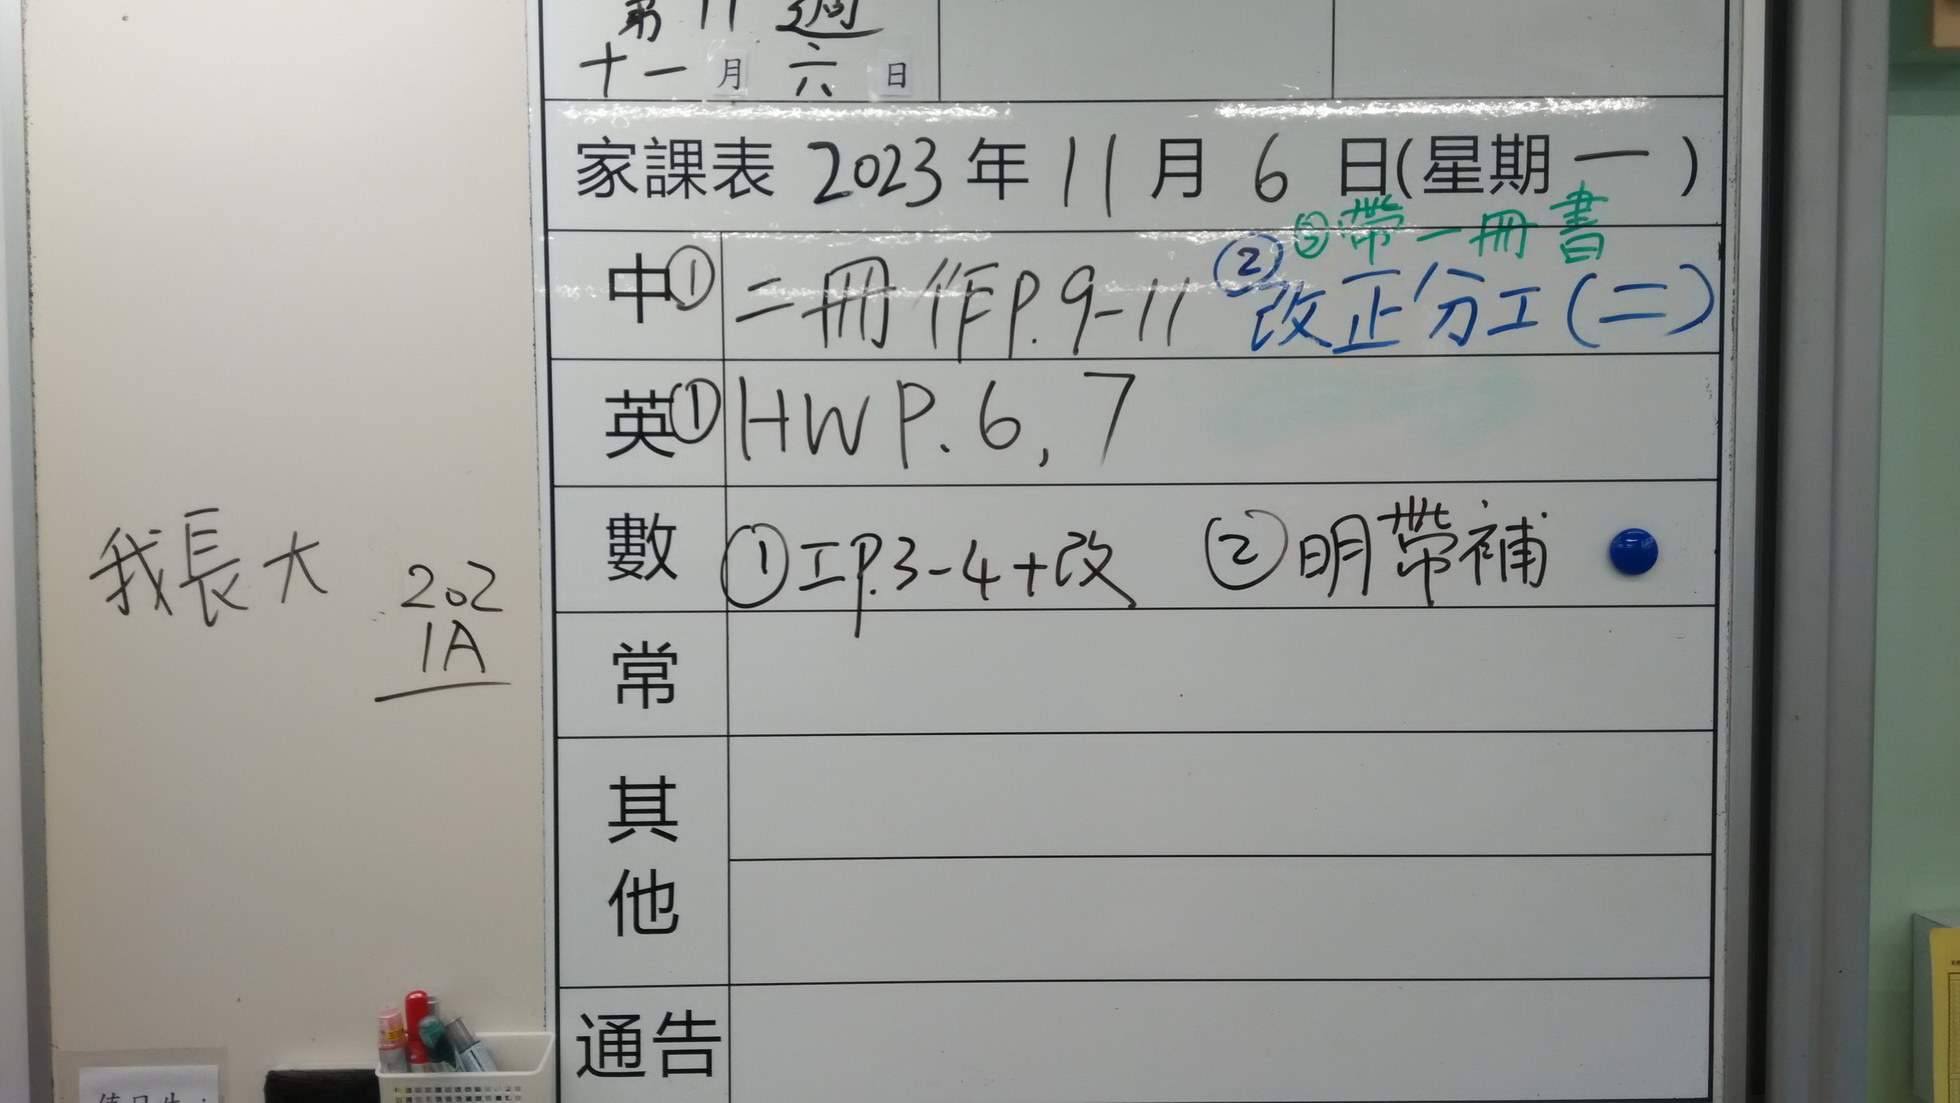 第11週
十一月六日
家課表 2023年11月6日(星期一)
③帶一冊書
中①二冊作P.9-11 ②改正分工(二)
英①HW P.6,7
數①工P.3-4+改 ②明帶補
常
其他
通告
我長大
202
1A
值日生: